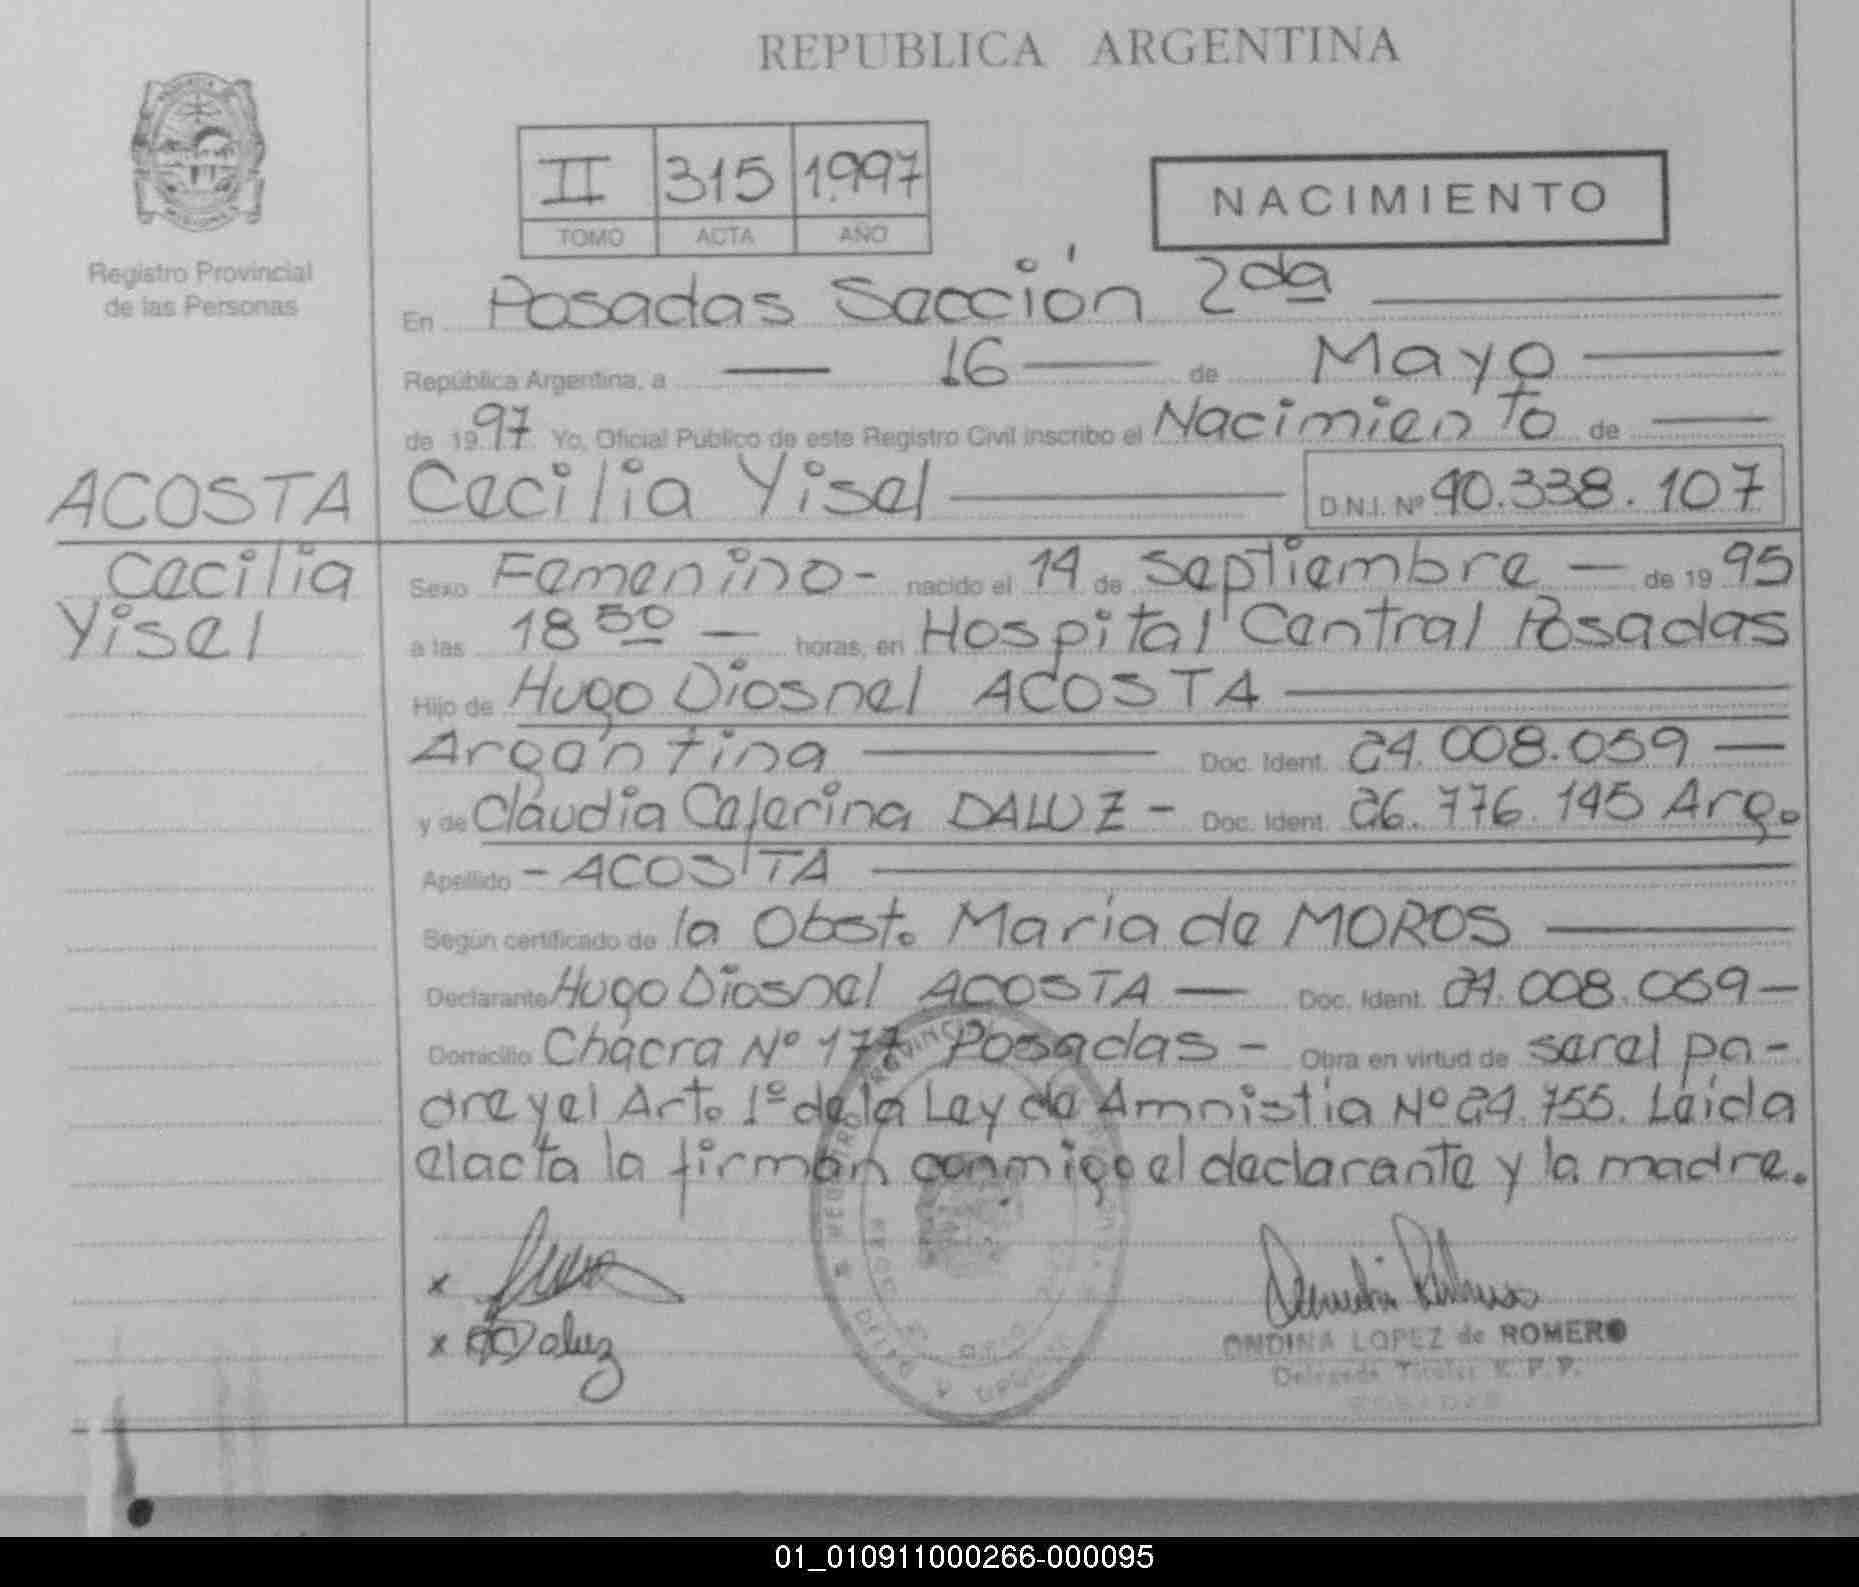 REPUBLICA ARGENTINA
II 315 1.997
TOMO ACTA AÑO
NACIMIENTO
Registro Provincial
de las Personas
En Posadas Sección 2da
República Argentina, a 16 de Mayo
de 1997 Yo, Oficial Público de este Registro Civil inscribo el Nacimiento de
ACOSTA Cecilia Yisel D.N.I. Nº 40.338.107
Cecilia
Yisel
Sexo Femenino- nacido el 14 de Septiembre de 1995
a las 18 50 horas, en Hospital Central Posadas
Hijo de Hugo Diosnel ACOSTA
Argentina Doc. Ident. 24.008.059
y de Claudia Ceferina DALUZ - Doc. Ident. 26.776.145 Arg.
Apellido - ACOSTA
Según certificado de la Obst. Maria de MOROS
Declarante Hugo Diosnel ACOSTA Doc. Ident. 24.008.059
Domicilio Chacra Nº 177 Posadas - Obra en virtud de ser el pa-
dre y el Art. 1º de la Ley de Amnistia Nº 24.755. Leida
el acta la firman conmigo el declarante y la madre.
x
x Daluz
ONDINA LOPEZ de ROMERO
Delegada Titular R. P. P.
01_010911000266-000095